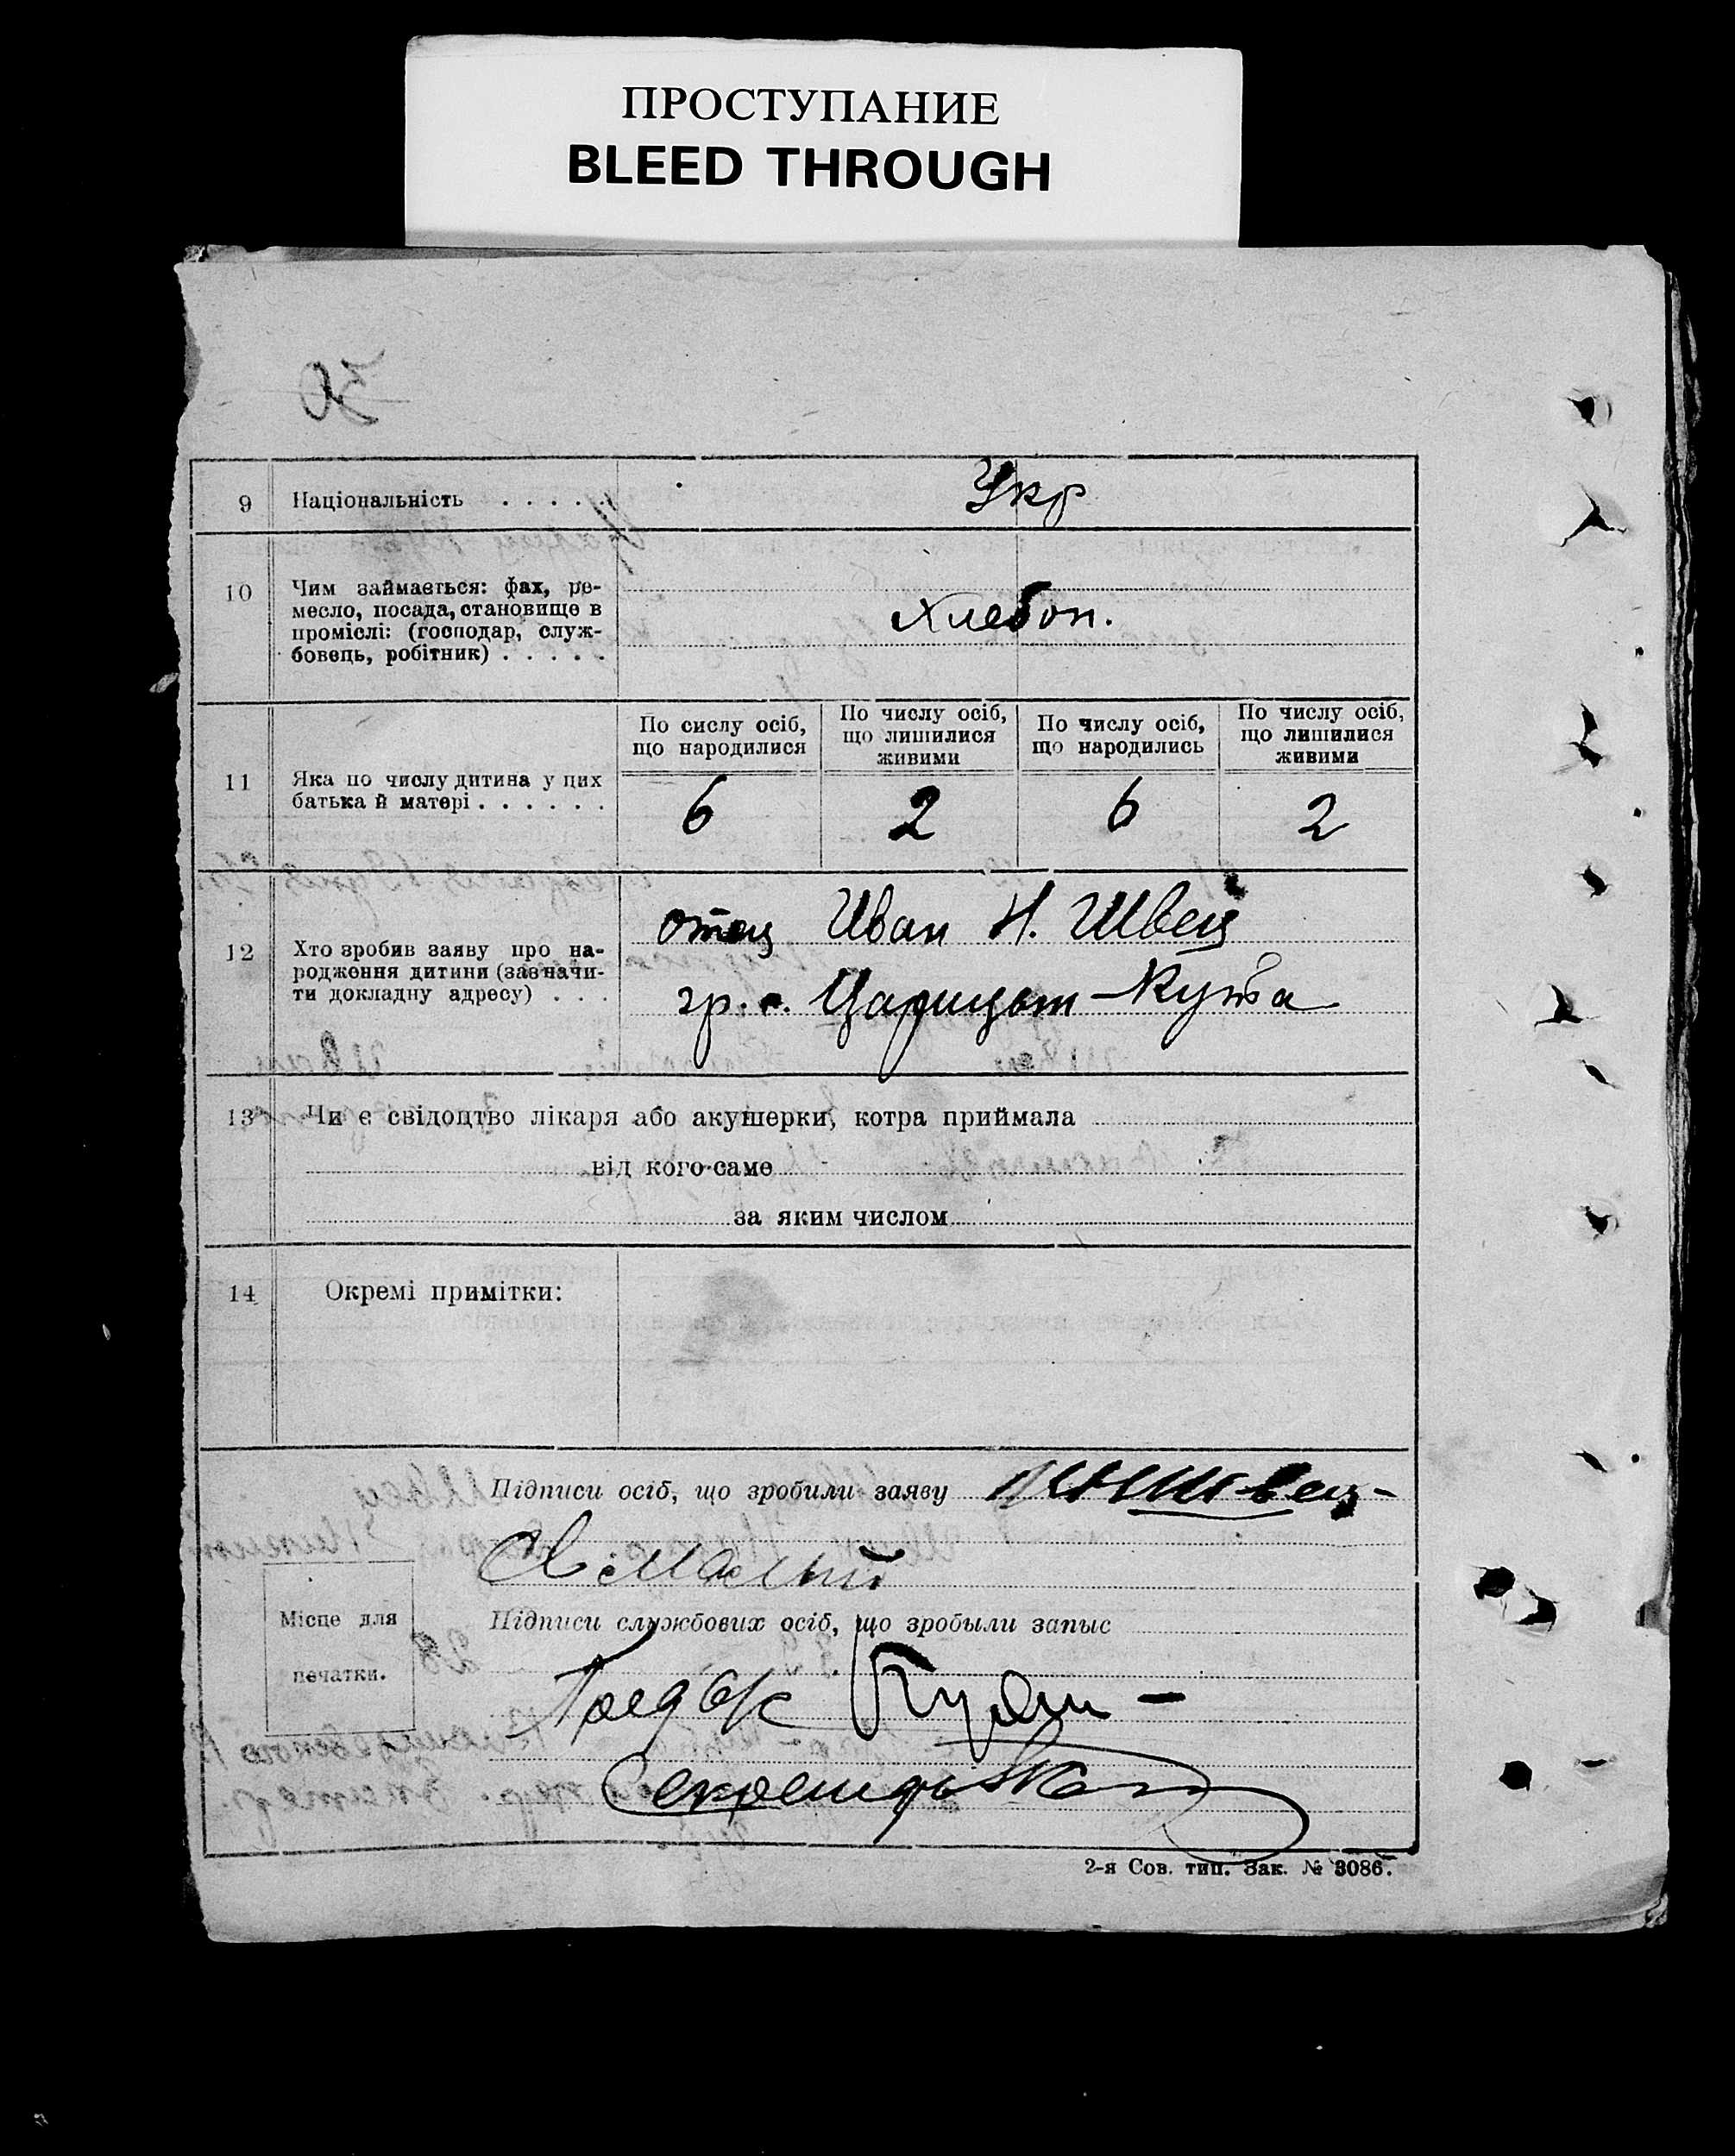 ПРОСТУПАНИЕ
BLEED THROUGH
9 Національність . . . . . Укр
10 Чим займається: фах, ре-
месло, посада, становище в
промислі: (господар, служ-
бовець, робітник) . . . . . хлебоп.
По сислу осіб, що народилися
По числу осіб, що лишилися живими
По числу осіб, що народились
По числу осіб, що лишилися живими
11 Яка по числу дитина у цих
батька й матері . . . . . . 6 2 6 2
12 Хто зробив заяву про на-
родження дитини (зазначи-
ти докладну адресу) . . .
отец Иван Н. Швец
гр. с. Царицын-Кута
13 Чи є свідоцтво лікаря або акушерки, котра приймала
від кого саме
за яким числом
14 Окремі примітки:
Підписи осіб, що зробили заяву Швец
Малый
Місце для
печатки.
Підписи службових осіб, що зробыли запыс
2-я Сов. тип. Зак. № 3086.